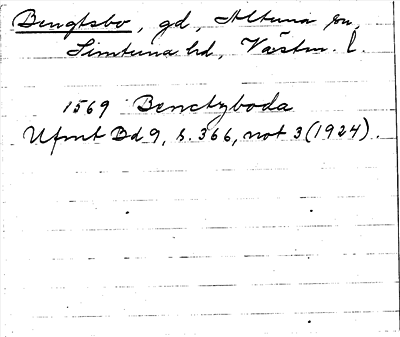 Bengtsbo, gd, Altuna sn,
Simtuna hd, Västm. l.
1569 Benctzboda
Ufmt Bd 9, s. 366, not 3 (1924).